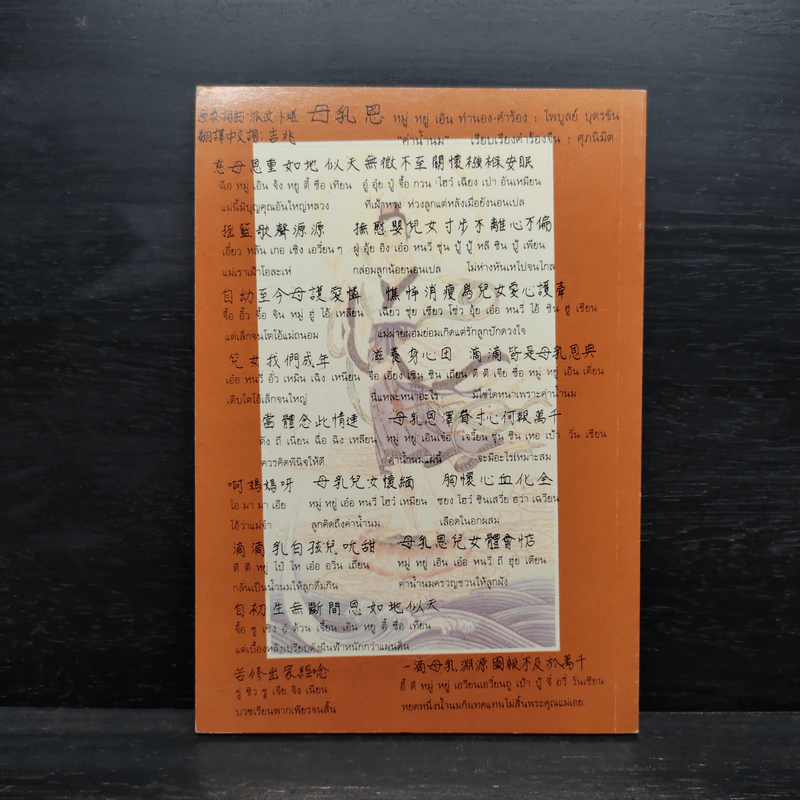 原泰詞曲:派汶卜植 母乳恩 หมู่ หยู่ เอิน ทำนอง-คำร้อง : ไพบูลย์ บุตรขัน
翻譯中文詞:吉兆 "ค่าน้ำนม" เรียบเรียงคำร้องจีน : ศุภนิมิต
慈母恩重如地似天無微不至關懷襁褓安眠
ฉือ หมู่ เอิน จ้ง หยู ตี้ ซื่อ เทียน อู๋ อุ้ย ปู้ จื้อ กวน ไฮว๋ เฉียง เปา อันเหมียน
แม่นี้มีบุญคุณอันใหญ่หลวง ที่เฝ้าหวง ห่วงลูกแต่หลังเมื่อยังนอนเปล
搖籃歌聲源源 撫慰嬰兒女寸步不離心不偏
เอี๋ยว หลัน เกอ เซิง เอวี๋ยน ๆ ฝู่ อุ้ย อิง เอ๋อ หนวี่ ชุ่น ปู้ ปู้ หลี ซิน ปู้ เพียน
แม่เราเฝ้าโอละเห่ กล่อมลูกน้อยนอนเปล ไม่ห่างหันเหไปจนไกล
自幼至今母護愛憐 憔悴消瘦為兒女愛心護牽
จื้อ อิ้ว จื้อ จิน หมู่ ฮู่ ไอ้ เหลียน เฉียว ชุ่ย เซียว โซ่ว อุ้ย เอ๋อ หนวี่ ไอ้ ซิน ฮู่ เชียน
แต่เล็กจนโตโอ้แม่ถนอม แม่ผ่ายผอมย่อมเกิดแต่รักลูกปักดวงใจ
兒女我們成年 滋養身心田 滴滴皆是母乳恩典
เอ๋อ หนวี่ อั่ว เหมิน เฉิง เหนียน จือ เอี่ยง เซิน ซิน เถียน ตี ตี เจีย ซื่อ หมู่ หยู่ เอิน เตี่ยน
เติบโตโอ้เล็กจนใหญ่ นี่แหละหนาอะไร มิใช่ใดหนาเพราะค่าน้ำนม
當體念此情連 母乳恩澤聲寸心何報萬千
ตัง ถี่ เนี่ยน ฉื่อ ฉิง เหลียน หมู่ หยู่ เอินเจ๋อ เจวี้ยน ชุ่น ซิน เหอ เป้า วั่น เชียน
ควรคิดพินิจให้ดี ค่าน้ำนมแม่นี้ จะมีอะไรเหมาะสม
啊媽媽呀 母乳兒女懷緬 胸懷心血化全
โอ มา มา เอีย หมู่ หยู่ เอ๋อ หนวี่ ไฮว๋ เหมี่ยน ซยง ไฮว๋ ซินเสวี่ย ฮว่า เฉวียน
โอ้ว่าแม่จ๋า ลูกคิดถึงค่าน้ำนม เลือดในอกผสม
滴滴乳白孩兒吮甜 母乳恩兒女體會惦
ตี ตี หยู่ ไป๋ ไห เอ๋อ เถียน หมู่ หยู่ เอิน เอ๋อ หนวี่ ถี่ ฮุ่ย เตี้ยน
กลั่นเป็นน้ำนมให้ลูกดื่มกิน ค่าน้ำนมควรชวนให้ลูกฝัง
自初生無斷間恩如地似天
จื้อ ชู เซิง อู๋ ต้วน เจี้ยน เอิน หยู ตี้ ซื่อ เทียน
แต่เบื้องหลังเปรียบดังผืนฟ้าหนักกว่าแผ่นดิน
苦修出家經唸 一滴母乳溯源圖報不及於萬千
ขู่ ซิว ชู เจีย จิง เนี่ยน อี้ ตี หมู่ หยู่ เป้า ปู้ จี๋ อวี๋ วั่นเชียน
บวชเรียนพากเพียรจนสิ้น หยดหนึ่งน้ำนมกินทดแทนไม่สิ้นพระคุณแม่เอย.